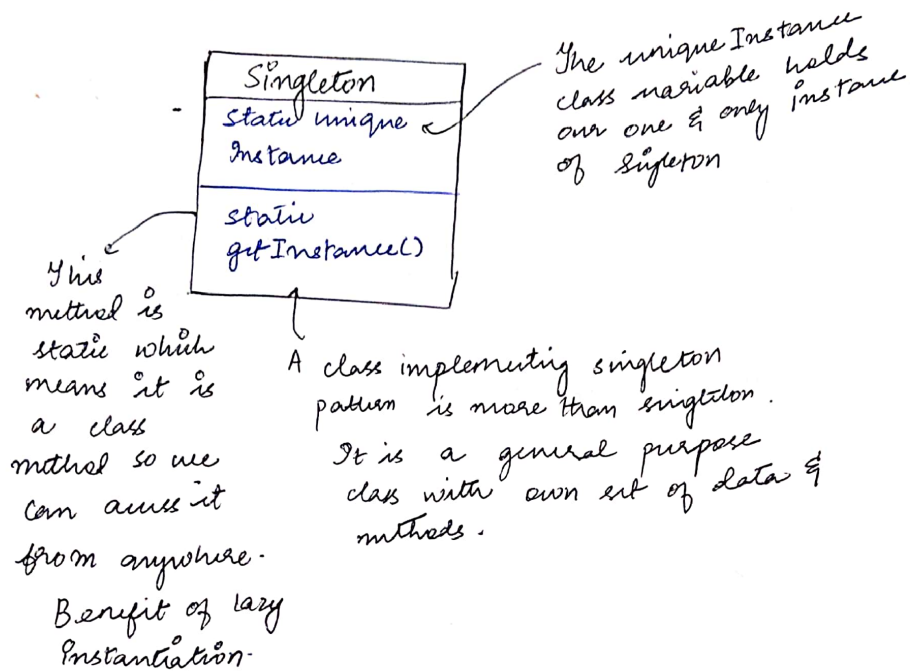 Singleton
static unique
Instance
static
getInstance()
The unique Instance
class variable holds
our one & only instance
of singleton
This
method is
static which
means it is
a class
method so we
can access it
from anywhere.
Benefit of lazy
Instantiation.
A class implementing singleton
pattern is more than singleton.
It is a general purpose
class with own set of data &
methods.